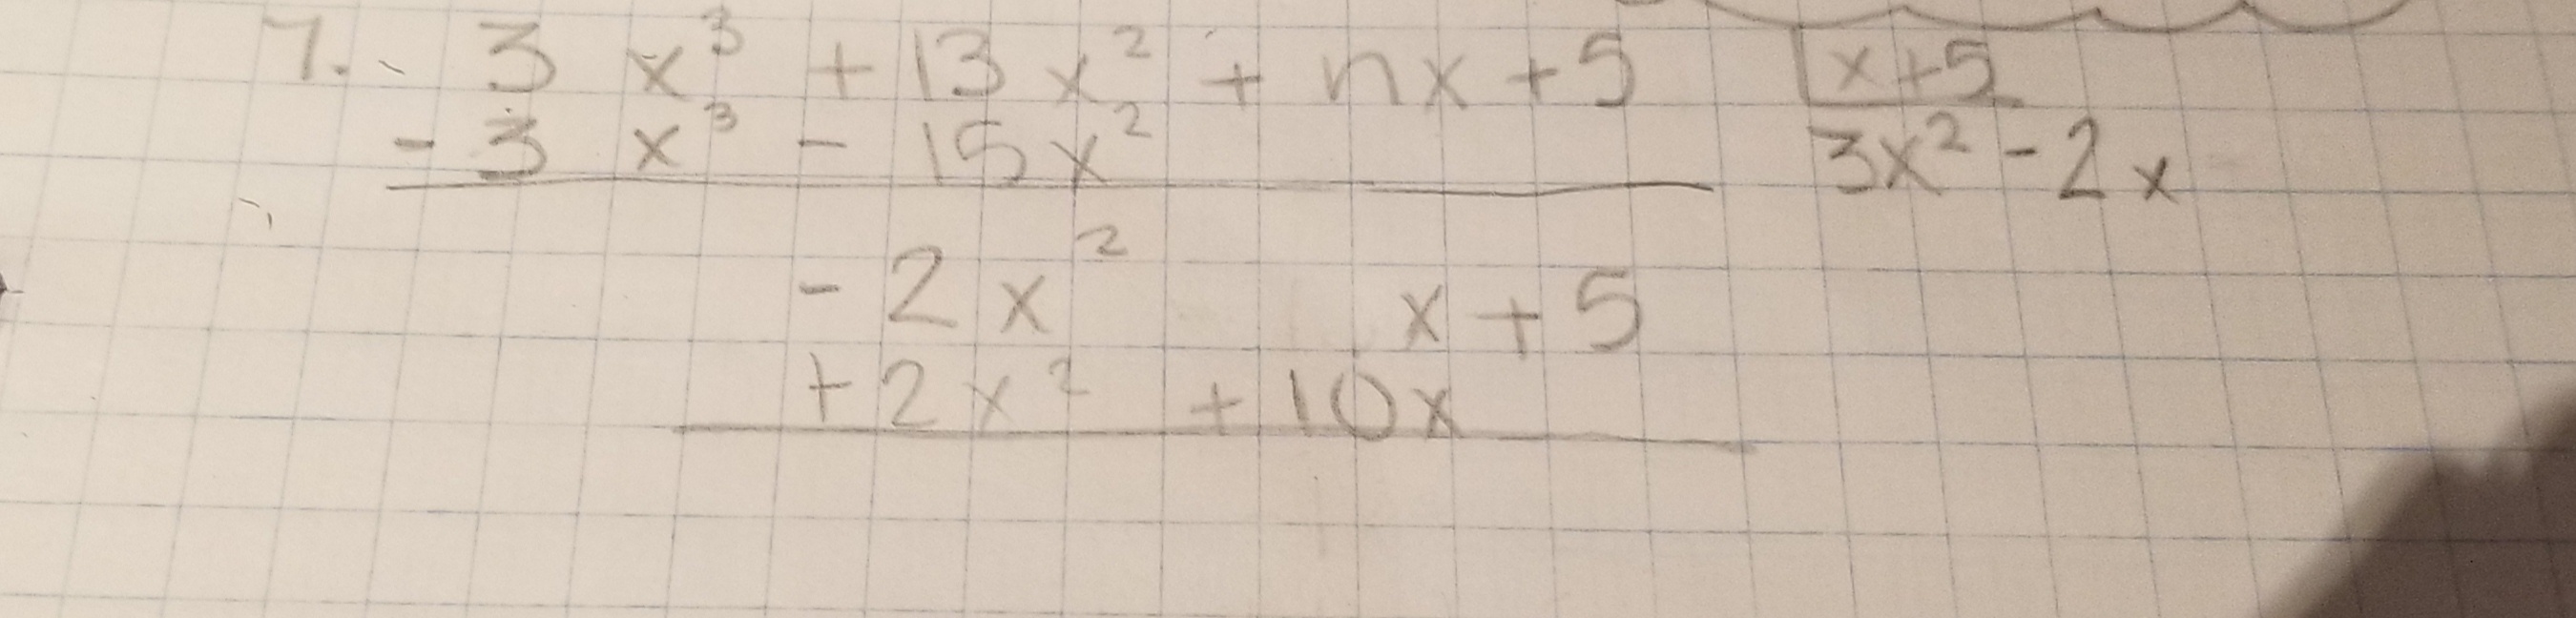 7. 3x³ + 13x² + nx + 5 | x + 5
- 3x³ - 15x² 3x² - 2x
- 2x² x + 5
+ 2x² + 10x